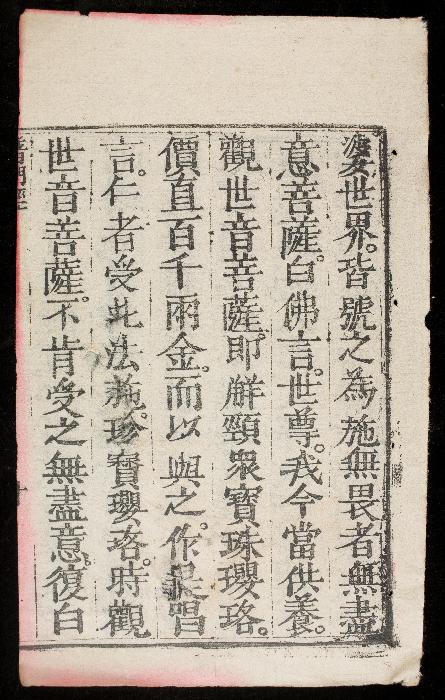 婆世界。皆號之為施無畏者無盡
意菩薩。白佛言。世尊。我今當供養。
觀世音菩薩。即解頸眾寶珠瓔珞。
價直百千兩金。而以與之。作是唱
言。仁者受此法施。珍寶瓔珞。時觀
世音菩薩。不肯受之無盡意。復白